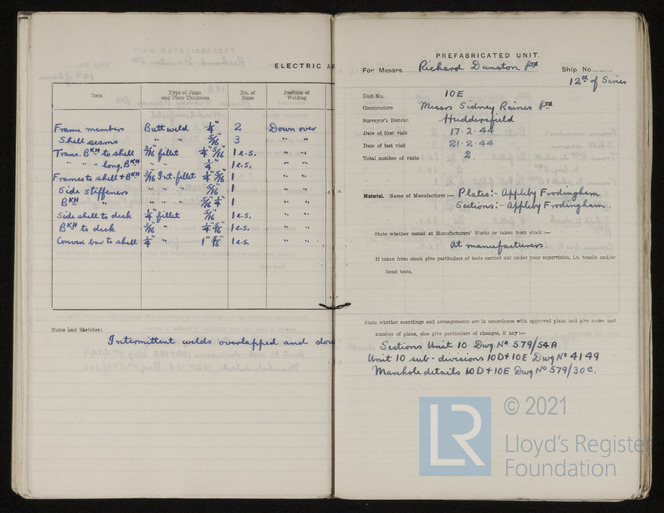 ELECTRIC A
Item
Type of Joint and Plate Thickness
No. of Runs
Position of Welding
Frame members Butt weld 1/4" 2 Down over
Shell seams " " 5/16 3 " "
Trans. BKH to shell 3/16 fillet 1/4" 5/16 1 e.s. " "
" " long. BKH " " 1/4" 1 e.s. " "
Frames to shell + BKH 3/16 Int. fillet 1/4" 5/16 1 " "
Side stiffeners " " " 5/16" 1 " "
BKH " " " " 5/16 1/4" 1 " "
Side shell to deck 1/4 fillet 5/16 1 e.s. " "
BKH to deck 5/16 " 1/4" 5/16 1 e.s. " "
Convex bar to shell 1/4" " 1" 5/16 1 e.s. " "
Notes and Sketches:
Intermittent welds overlapped and dow
PREFABRICATED UNIT.
For Messrs. Richard Dunston Ltd Ship No.
12th of Series
Unit No. 10E
Constructors Messrs Sidney Raines Ltd
Surveyor's District Huddersfield
Date of first visit 17.2.44
Date of last visit 21.2.44
Total number of visits 2
Material. Name of Manufacturer:— Plates:- Appleby Frodingham
Sections:- Appleby Frodingham.
State whether tested at Manufacturers' Works or taken from stock:—
At manufacturers
If taken from stock give particulars of tests carried out under your supervision, i.e. tensile and/or
bend tests.
State whether scantlings and arrangements are in accordance with approved plans and give name and
number of plans, also give particulars of changes, if any:—
Sections Unit 10 Dwg No 579/54A
Unit 10 sub-divisions 10D+10E Dwg No 4149
Manhole details 10D+10E Dwg No 579/30C.
© 2021
LR
Lloyd's Register
Foundation